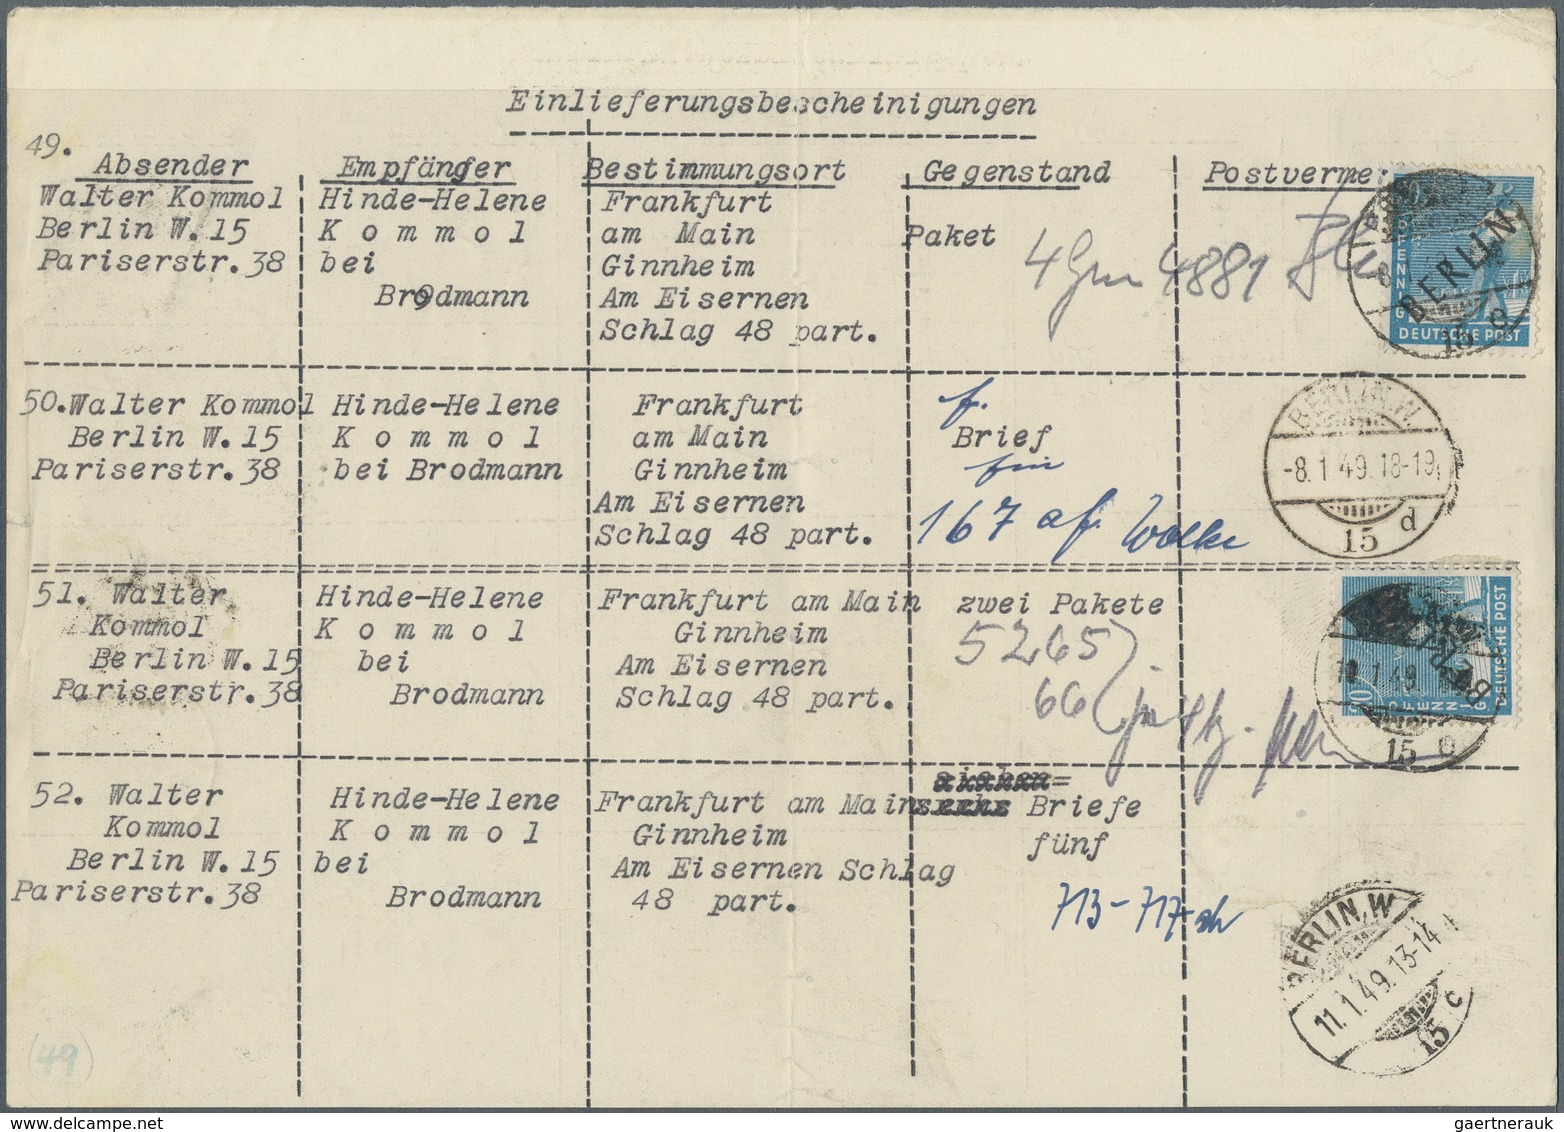 Einlieferungsbescheinigungen
49. Absender Empfänger Bestimmungsort Gegenstand Postverme
Walter Kommol Hinde-Helene Frankfurt
Berlin W.15 K o m m o l am Main Paket
Pariserstr.38 bei Ginnheim 4881
Brodmann Am Eisernen
Schlag 48 part.
BERLIN
DEUTSCHE POST
15
50. Walter Kommol Hinde-Helene Frankfurt f.
Berlin W.15 K o m m o l am Main Brief
Pariserstr.38 bei Brodmann Ginnheim
Am Eisernen 167
Schlag 48 part.
BERLIN.W
-8.1.49.18-19
15 d
51. Walter Hinde-Helene Frankfurt am Main zwei Pakete
Kommol K o m m o l Ginnheim 5265
Berlin W.15 bei Am Eisernen 66
Pariserstr.38 Brodmann Schlag 48 part.
DEUTSCHE POST
PFENNIG
1.49
15
52. Walter Hinde-Helene Frankfurt am Main Briefe
Kommol K o m m o l Ginnheim fünf
Berlin W.15 bei Am Eisernen Schlag
Pariserstr.38 Brodmann 48 part. 713-717
BERLIN.W
11.1.49.13-14
15 c
(49)
gaertnerauk